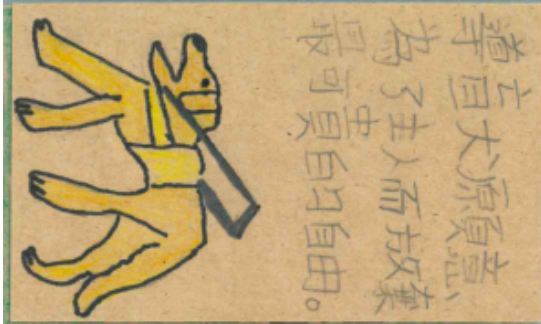 導盲犬願意
為了主人而放棄
最可貴的自由。